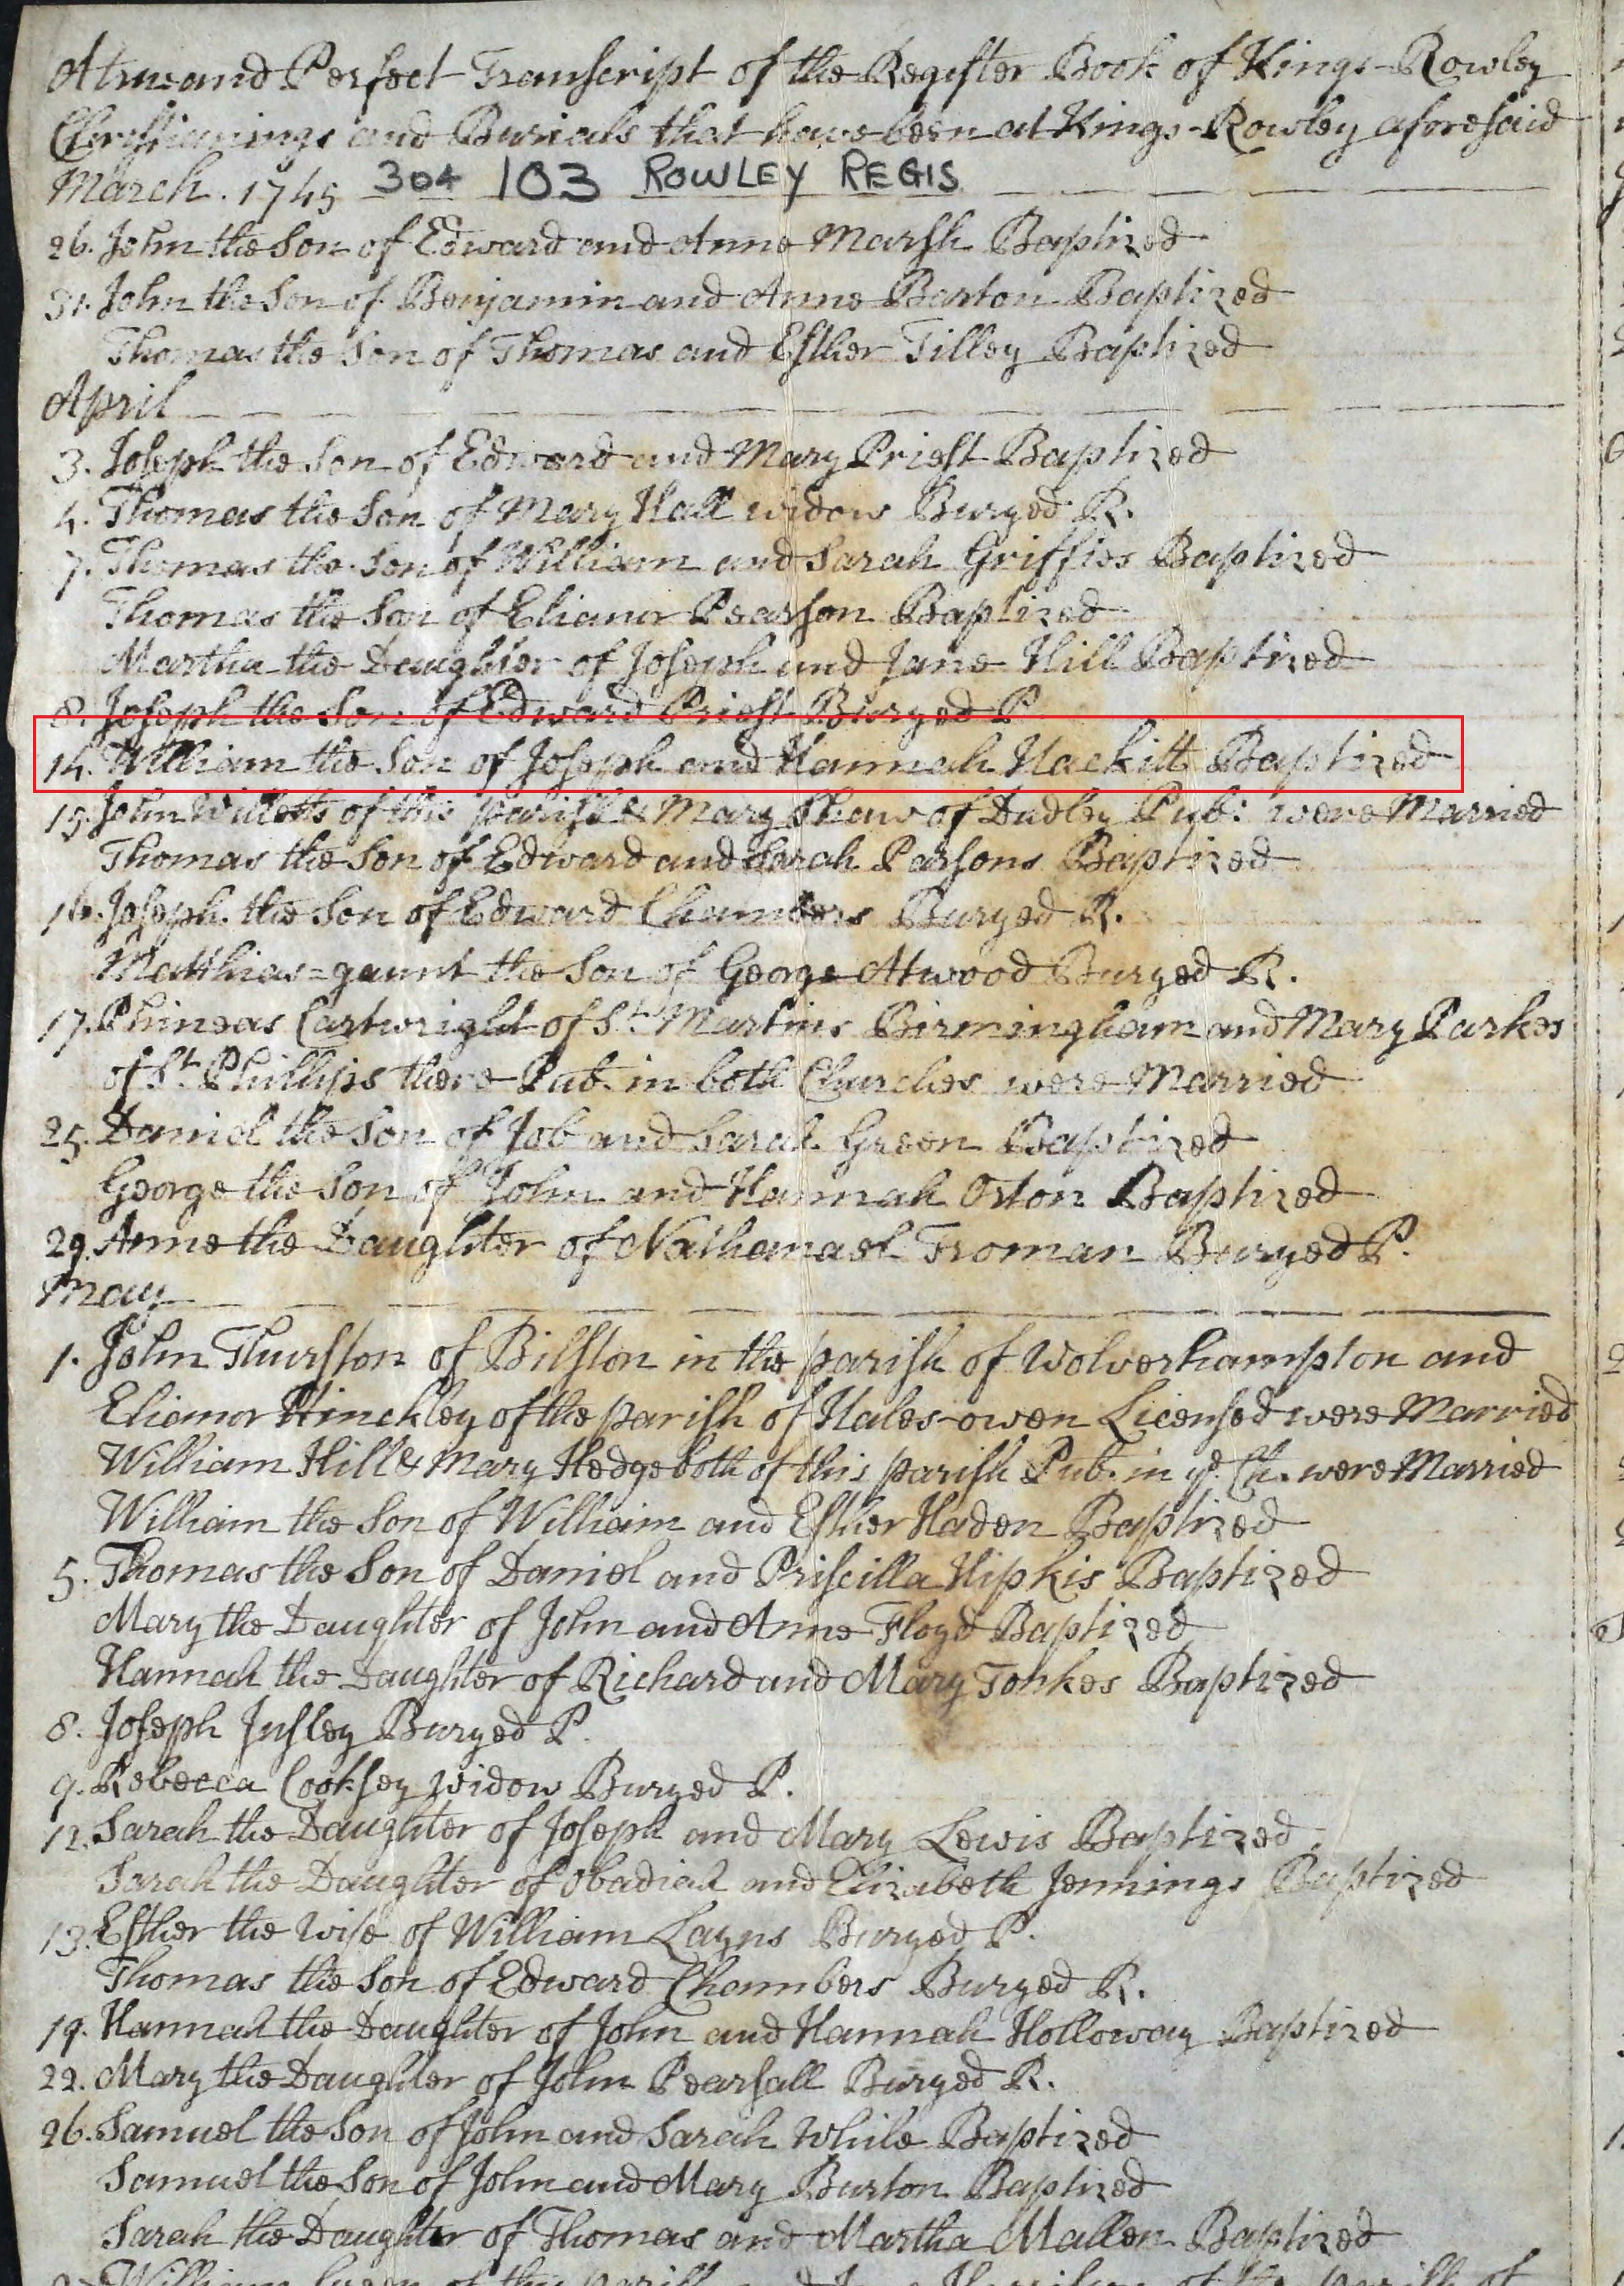 A true and Perfect Transcript of the Register Book of Kings-Rowley
Chrissianings and Burials that have been at Kings-Rowley aforesaid
March. 1745 304 103 ROWLEY REGIS
26. John the Son of Edward and Anne Marsh Baptized
31. John the Son of Benjamin and Anne Barton Baptized
Thomas the Son of Thomas and Esther Tilley Baptized
April
3. Joseph the Son of Edward and Mary Priest Baptized
4. Thomas the Son of Mary Hall widow Buryed R.
7. Thomas the Son of William and Sarah Griffies Baptized
Thomas the Son of Elianor Pearson Baptized
Martha the Daughter of Joseph and Jane Hill Baptized
8. Joseph the Son of Edward Priest Buryed P
14. William the Son of Joseph and Hannah Hackitt Baptized
15. John Willetts of this parish & Mary Shaw of Dudley Pub: were Married
Thomas the Son of Edward and Sarah Parsons Baptized
16. Joseph the Son of Edward Chambers Buryed R.
Matthias=gaunt the Son of George Atwood Buryed R.
17. Phineas Cartwright of St. Martins Birmingham and Mary Parkes
of St. Phillips there Pub. in both Churches were Married
25. Daniel the Son of Job and Sarah Green Baptized
George the Son of John and Hannah Orton Baptized
29. Anne the Daughter of Nathanael Troman Buryed P.
May
1. John Thurston of Bilston in the parish of Wolverhampton and
Elianor Hinckley of the parish of Hales-owen Licensed were Married
William Hill & Mary Hedge both of this parish Pub. in ye. Ch. were Married
William the Son of William and Esther Haden Baptized
5. Thomas the Son of Daniel and Priscilla Hipkis Baptized
Mary the Daughter of John and Anne Floyd Baptized
Hannah the Daughter of Richard and Mary Tonkes Baptized
8. Joseph Insley Buryed P.
9. Rebecca Cooksey widow Buryed P.
12. Sarah the Daughter of Joseph and Mary Lewis Baptized
Sarah the Daughter of Obadiah and Elizabeth Jennings Baptized
13. Esther the Wife of William Layns Buryed P.
Thomas the Son of Edward Chambers Buryed R.
19. Hannah the Daughter of John and Hannah Holloway Baptized
22. Mary the Daughter of John Pearsall Buryed R.
26. Samuel the Son of John and Sarah While Baptized
Samuel the Son of John and Mary Burton Baptized
Sarah the Daughter of Thomas and Martha Mallen Baptized
William of this parish of the parish of